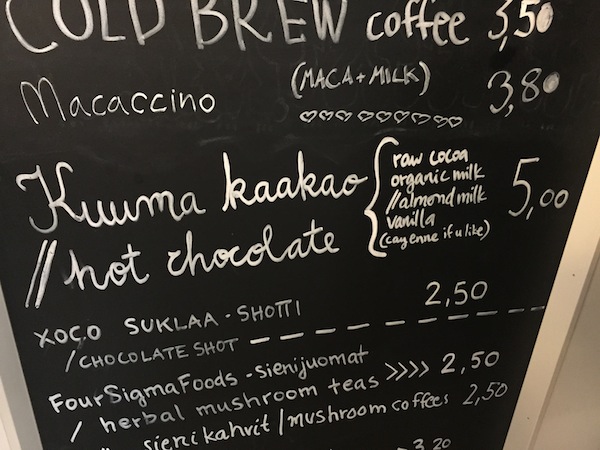 COLD BREW coffee 3,50
Macaccino (MACA + MILK) 3,80
♡♡♡♡♡♡♡♡♡
Kuuma kaakao
//hot chocolate
{ raw cocoa
organic milk
//almond milk
vanilla
(cayenne if u like)
5,00
XOCO SUKLAA - SHOTTI 2,50
/CHOCOLATE SHOT
FourSigmaFoods - sienijuomat
/ herbal mushroom teas >>>> 2,50
" sienikahvit / mushroom coffees 2,50
3,20